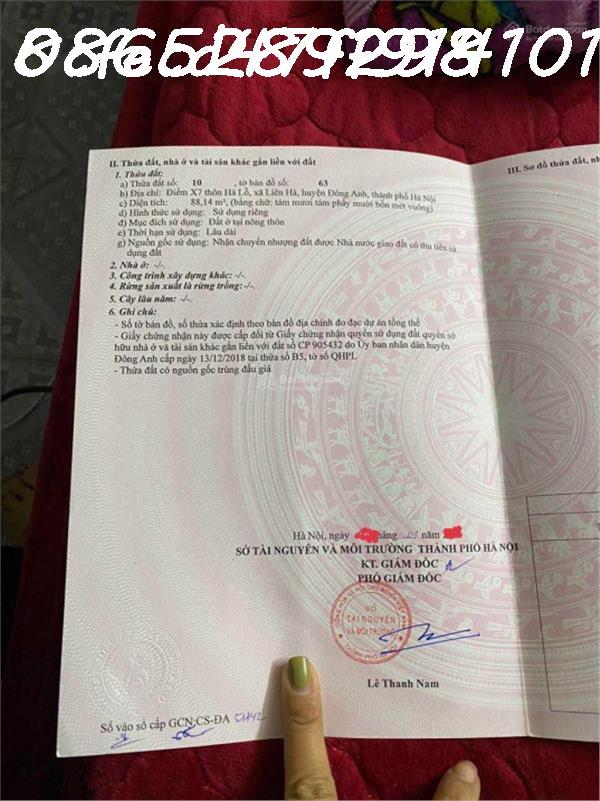 II. Thửa đất, nhà ở và tài sản khác gắn liền với đất
III. Sơ đồ thửa đất, nhà
1. Thửa đất:
a) Thửa đất số: 10 , tờ bản đồ số: 63
b) Địa chỉ: Điểm X7 thôn Hà Lỗ, xã Liên Hà, huyện Đông Anh, thành phố Hà Nội
c) Diện tích: 88,14 m², (bằng chữ: tám mươi tám phẩy mười bốn mét vuông)
d) Hình thức sử dụng: Sử dụng riêng
đ) Mục đích sử dụng: Đất ở tại nông thôn
e) Thời hạn sử dụng: Lâu dài
g) Nguồn gốc sử dụng: Nhận chuyển nhượng đất được Nhà nước giao đất có thu tiền sử
dụng đất
2. Nhà ở: -/-.
3. Công trình xây dựng khác: -/-.
4. Rừng sản xuất là rừng trồng:-/-.
5. Cây lâu năm: -/-.
6. Ghi chú:
- Số tờ bản đồ, số thửa xác định theo bản đồ địa chính đo đạc dự án tổng thể
- Giấy chứng nhận này được cấp đổi từ Giấy chứng nhận quyền sử dụng đất quyền sở
hữu nhà ở và tài sản khác gắn liền với đất số CP 905432 do Ủy ban nhân dân huyện
Đông Anh cấp ngày 13/12/2018 tại thửa số B5, tờ số QHPL
- Thửa đất có nguồn gốc trúng đấu giá
Hà Nội, ngày tháng năm
SỞ TÀI NGUYÊN VÀ MÔI TRƯỜNG THÀNH PHỐ HÀ NỘI
KT. GIÁM ĐỐC
PHÓ GIÁM ĐỐC
SỞ
TÀI NGUYÊN
VÀ MÔI TRƯỜNG
Lê Thanh Nam
Số vào sổ cấp GCN:CS-ĐA